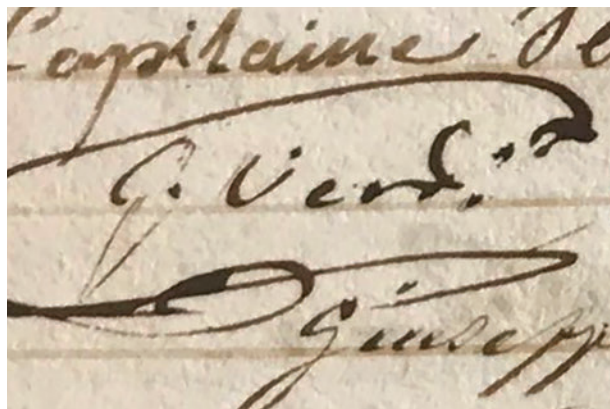 Capitaine de
G. Verdi
Giusepp